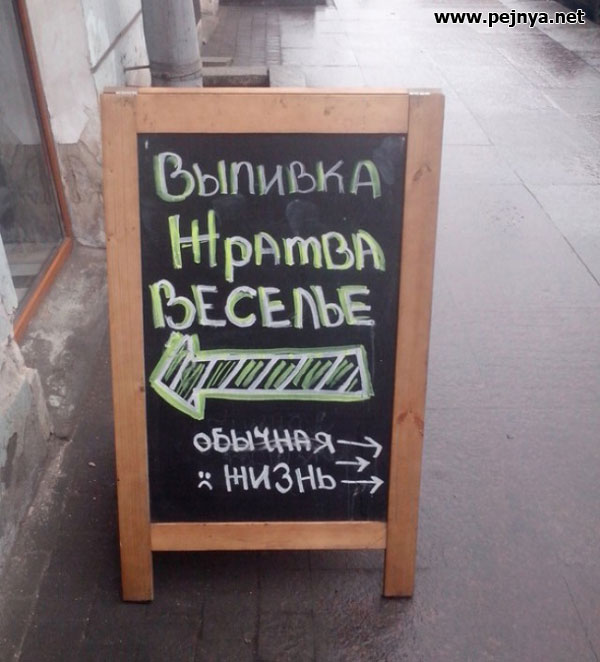 www.pejnya.net
Выпивка
Жратва
Веселье
обычная
:( жизнь